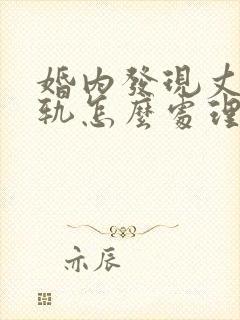 婚內發現丈
軌怎麼處理
亦辰